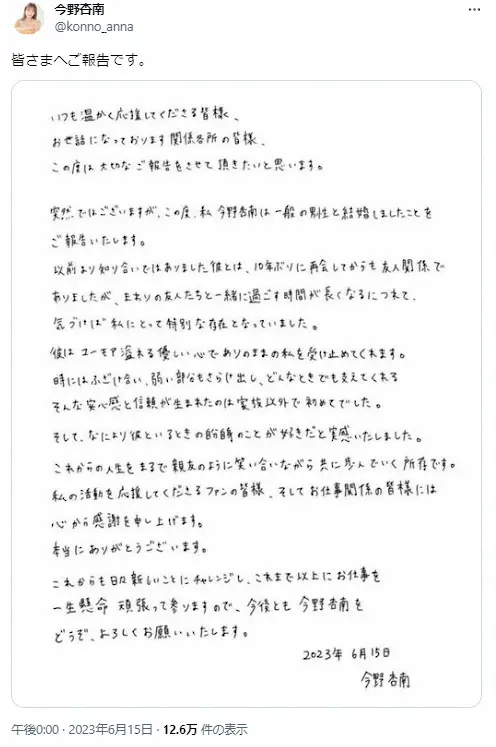 今野杏南
@konno_anna
皆さまへご報告です。
いつも温かく応援してくださる皆様、
お世話になっております関係各所の皆様、
この度は大切なご報告をさせて頂きたいと思います。
突然ではございますが、この度、私 今野杏南は一般の男性と結婚しましたことを
ご報告いたします。
以前より知り合いではありました彼とは、10年ぶりに再会してからも友人関係で
ありましたが、まわりの友人たちと一緒に過ごす時間が長くなるにつれて、
気づけば私にとって特別な存在となっていました。
彼はユーモア溢れる優しい心でありのままの私を受け止めてくれます。
時にはふざけ合い、弱い部分もさらけ出し、どんなときでも支えてくれる
そんな安心感と信頼が生まれたのは家族以外で初めてでした。
そして、なにより彼といるときの自分自身のことが好きだと実感いたしました。
これからの人生をまるで親友のように笑い合いながら共に歩んでいく所存です。
私の活動を応援してくださるファンの皆様、そしてお仕事関係の皆様には
心から感謝を申し上げます。
本当にありがとうございます。
これからも日々新しいことにチャレンジし、これまで以上にお仕事を
一生懸命 頑張って参りますので、今後とも 今野杏南を
どうぞ、よろしくお願いいたします。
2023年 6月15日
今野杏南
午後0:00 · 2023年6月15日 · 12.6万 件の表示